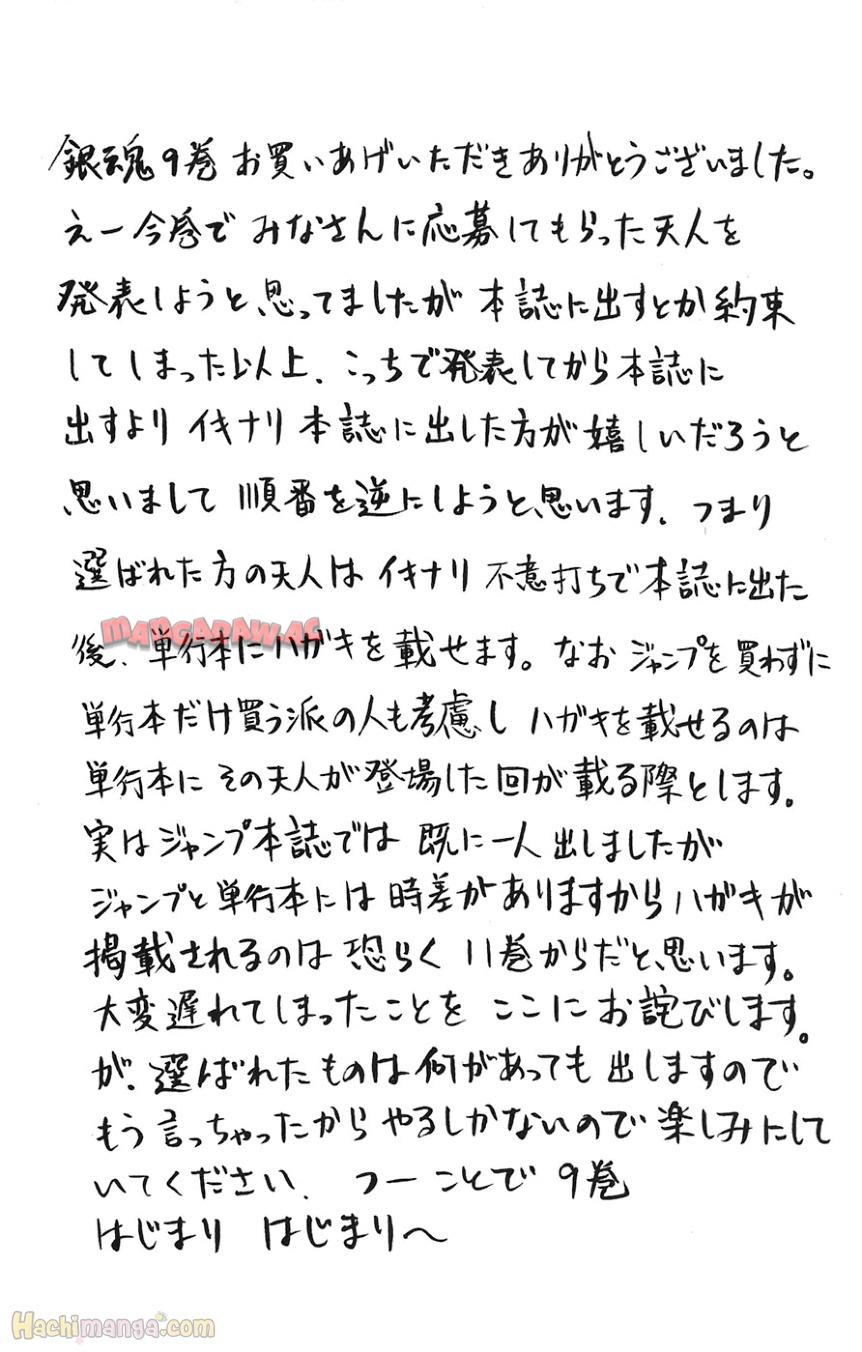 銀魂9巻 お買いあげいただきありがとうございました。
えー今巻で みなさんに応募してもらった天人を
発表しようと思ってましたが 本誌に出すとか約束
してしまった以上、こっちで発表してから本誌に
出すより イキナリ 本誌に出した方が嬉しいだろうと
思いまして 順番を逆にしようと思います。つまり
選ばれた方の天人は イキナリ 不意打ちで本誌に出た
後、単行本にハガキを載せます。なお ジャンプを買わずに
単行本だけ買う派の人も考慮し ハガキを載せるのは
単行本に その天人が登場した回が載る際とします。
実はジャンプ本誌では 既に一人出しましたが
ジャンプと単行本には 時差がありますからハガキが
掲載されるのは 恐らく 11巻からだと思います。
大変遅れてしまったことを ここにお詫びします。
が、選ばれたものは何があっても出しますので
もう言っちゃったからやるしかないので楽しみにして
いてください。 つーことで 9巻
はじまり はじまりへ
MANGARAW.AC
Hachimanga.com